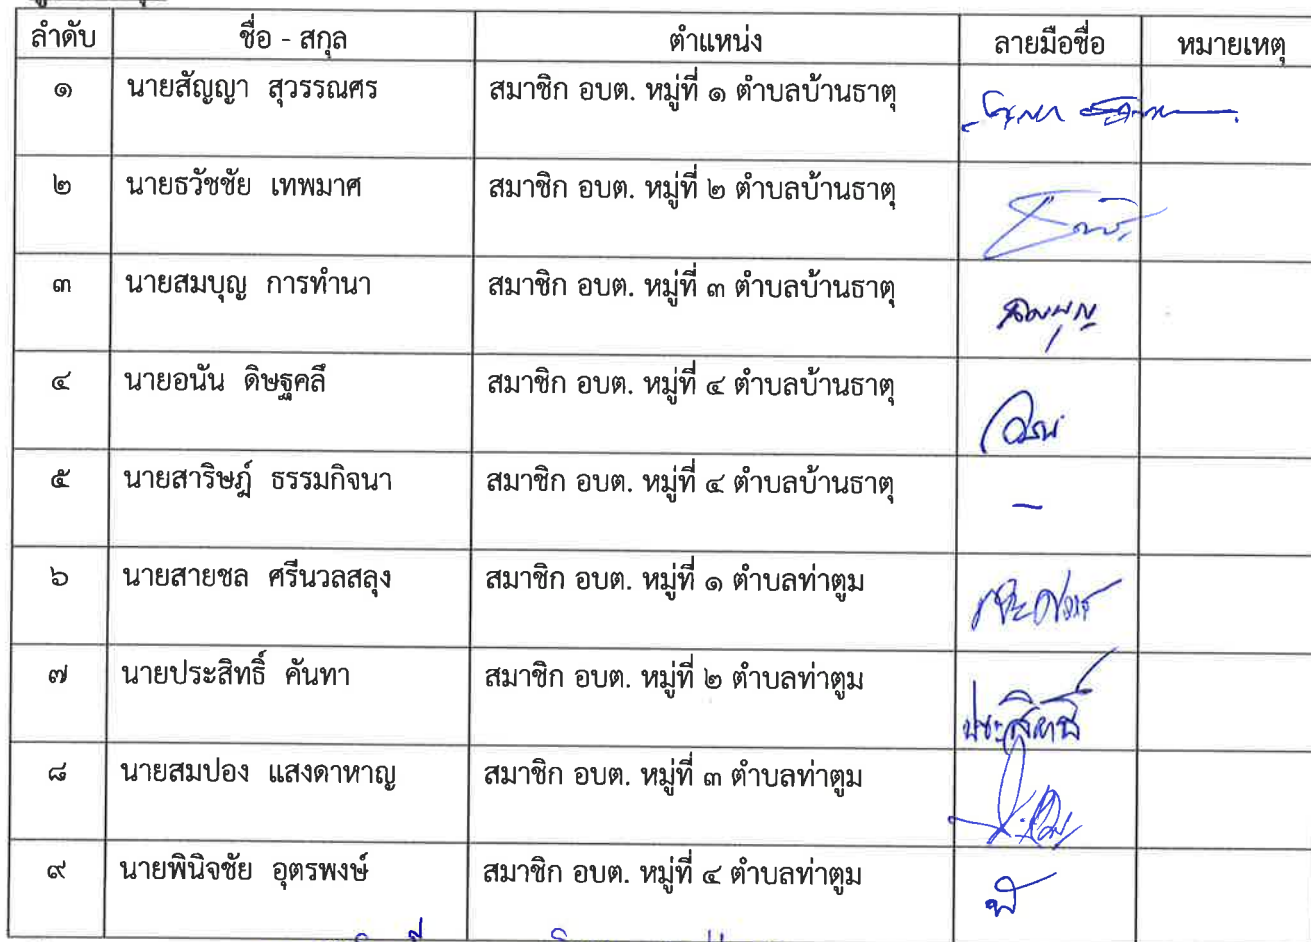 ลำดับ ชื่อ - สกุล ตำแหน่ง ลายมือชื่อ หมายเหตุ
๑ นายสัญญา สุวรรณศร สมาชิก อบต. หมู่ที่ ๑ ตำบลบ้านธาตุ
๒ นายธวัชชัย เทพมาศ สมาชิก อบต. หมู่ที่ ๒ ตำบลบ้านธาตุ
๓ นายสมบุญ การทำนา สมาชิก อบต. หมู่ที่ ๓ ตำบลบ้านธาตุ สมบุญ
๔ นายอนัน ดิษฐคลึ สมาชิก อบต. หมู่ที่ ๔ ตำบลบ้านธาตุ
๕ นายสาริษฎ์ ธรรมกิจนา สมาชิก อบต. หมู่ที่ ๔ ตำบลบ้านธาตุ -
๖ นายสายชล ศรีนวลสลุง สมาชิก อบต. หมู่ที่ ๑ ตำบลท่าตูม
๗ นายประสิทธิ์ คันทา สมาชิก อบต. หมู่ที่ ๒ ตำบลท่าตูม ประสิทธิ์
๘ นายสมปอง แสงดาหาญ สมาชิก อบต. หมู่ที่ ๓ ตำบลท่าตูม
๙ นายพินิจชัย อุตรพงษ์ สมาชิก อบต. หมู่ที่ ๔ ตำบลท่าตูม